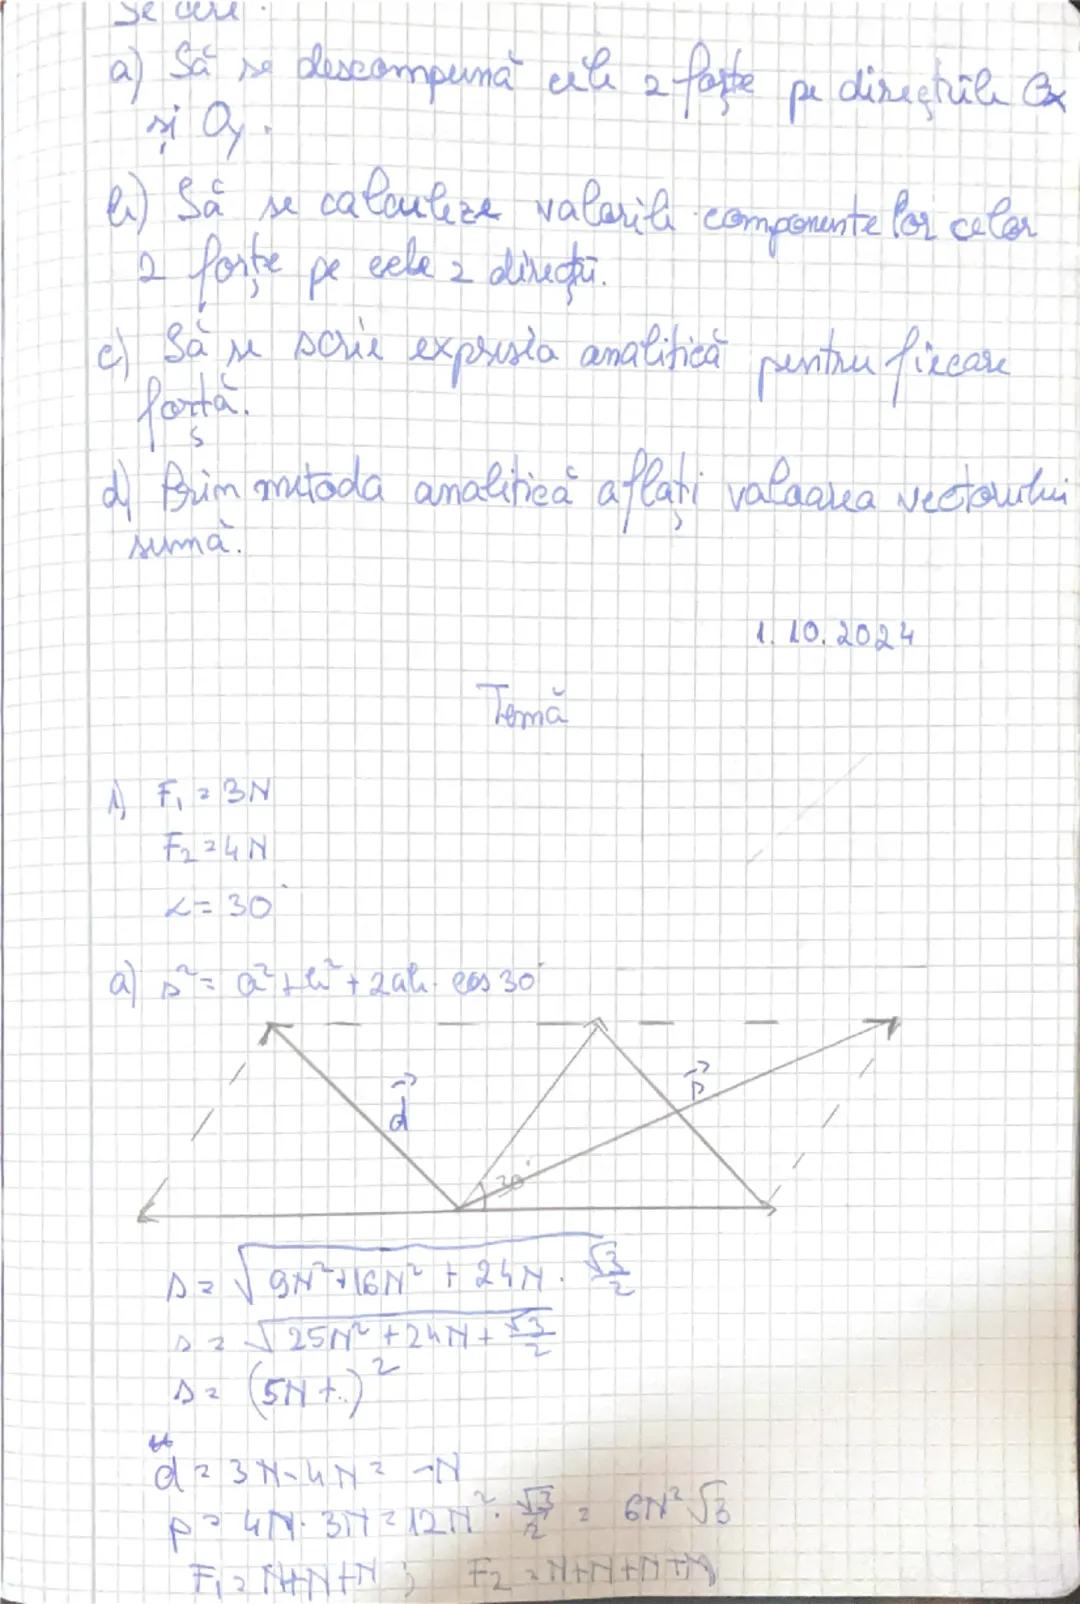 Se cere :
a) Să se descompună cele 2 forțe pe direcțiile Ox
și Oy.
b) Să se calculeze valorile componentelor celor
2 forțe pe cele 2 direcții.
c) Să se scrie expresia analitică pentru fiecare
forță.
d) Prin metoda analitică aflați valoarea vectorului
sumă.
1. 10. 2024
Temă
1) F₁ = 3N
F₂ = 4N
α = 30°
a) s² = a² + b² + 2ab · cos 30°
d⃗
s⃗
30°
s = √(9N² + 16N² + 24N · √3/2)
s = √(25N² + 24N + √3/2)
s = (5N + ..)²
d = 3N - 4N = -N
p = 4N · 3N = 12N² · √3/2 = 6N² √3
F₁ = N+N+N ; F₂ = N+N+N+N